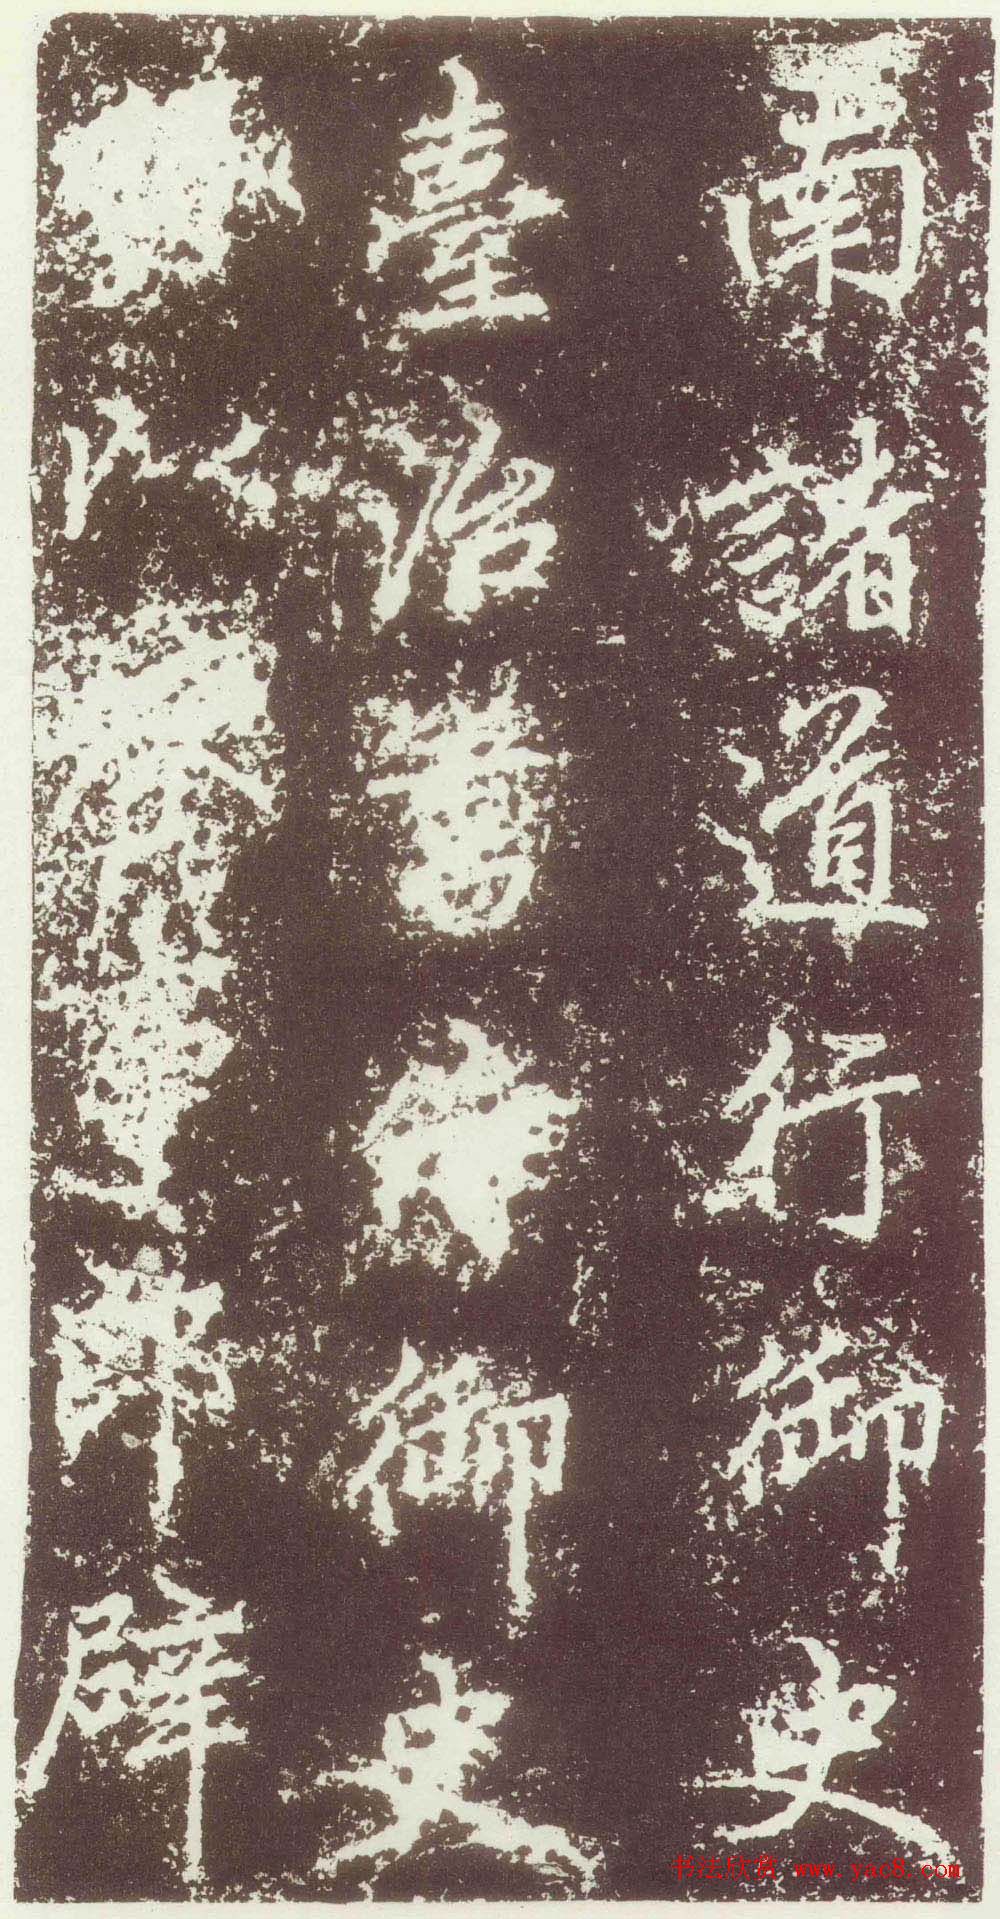 南諸道行御史
臺治書侍御史
以
師辟
书法欣赏 www.yac8.com